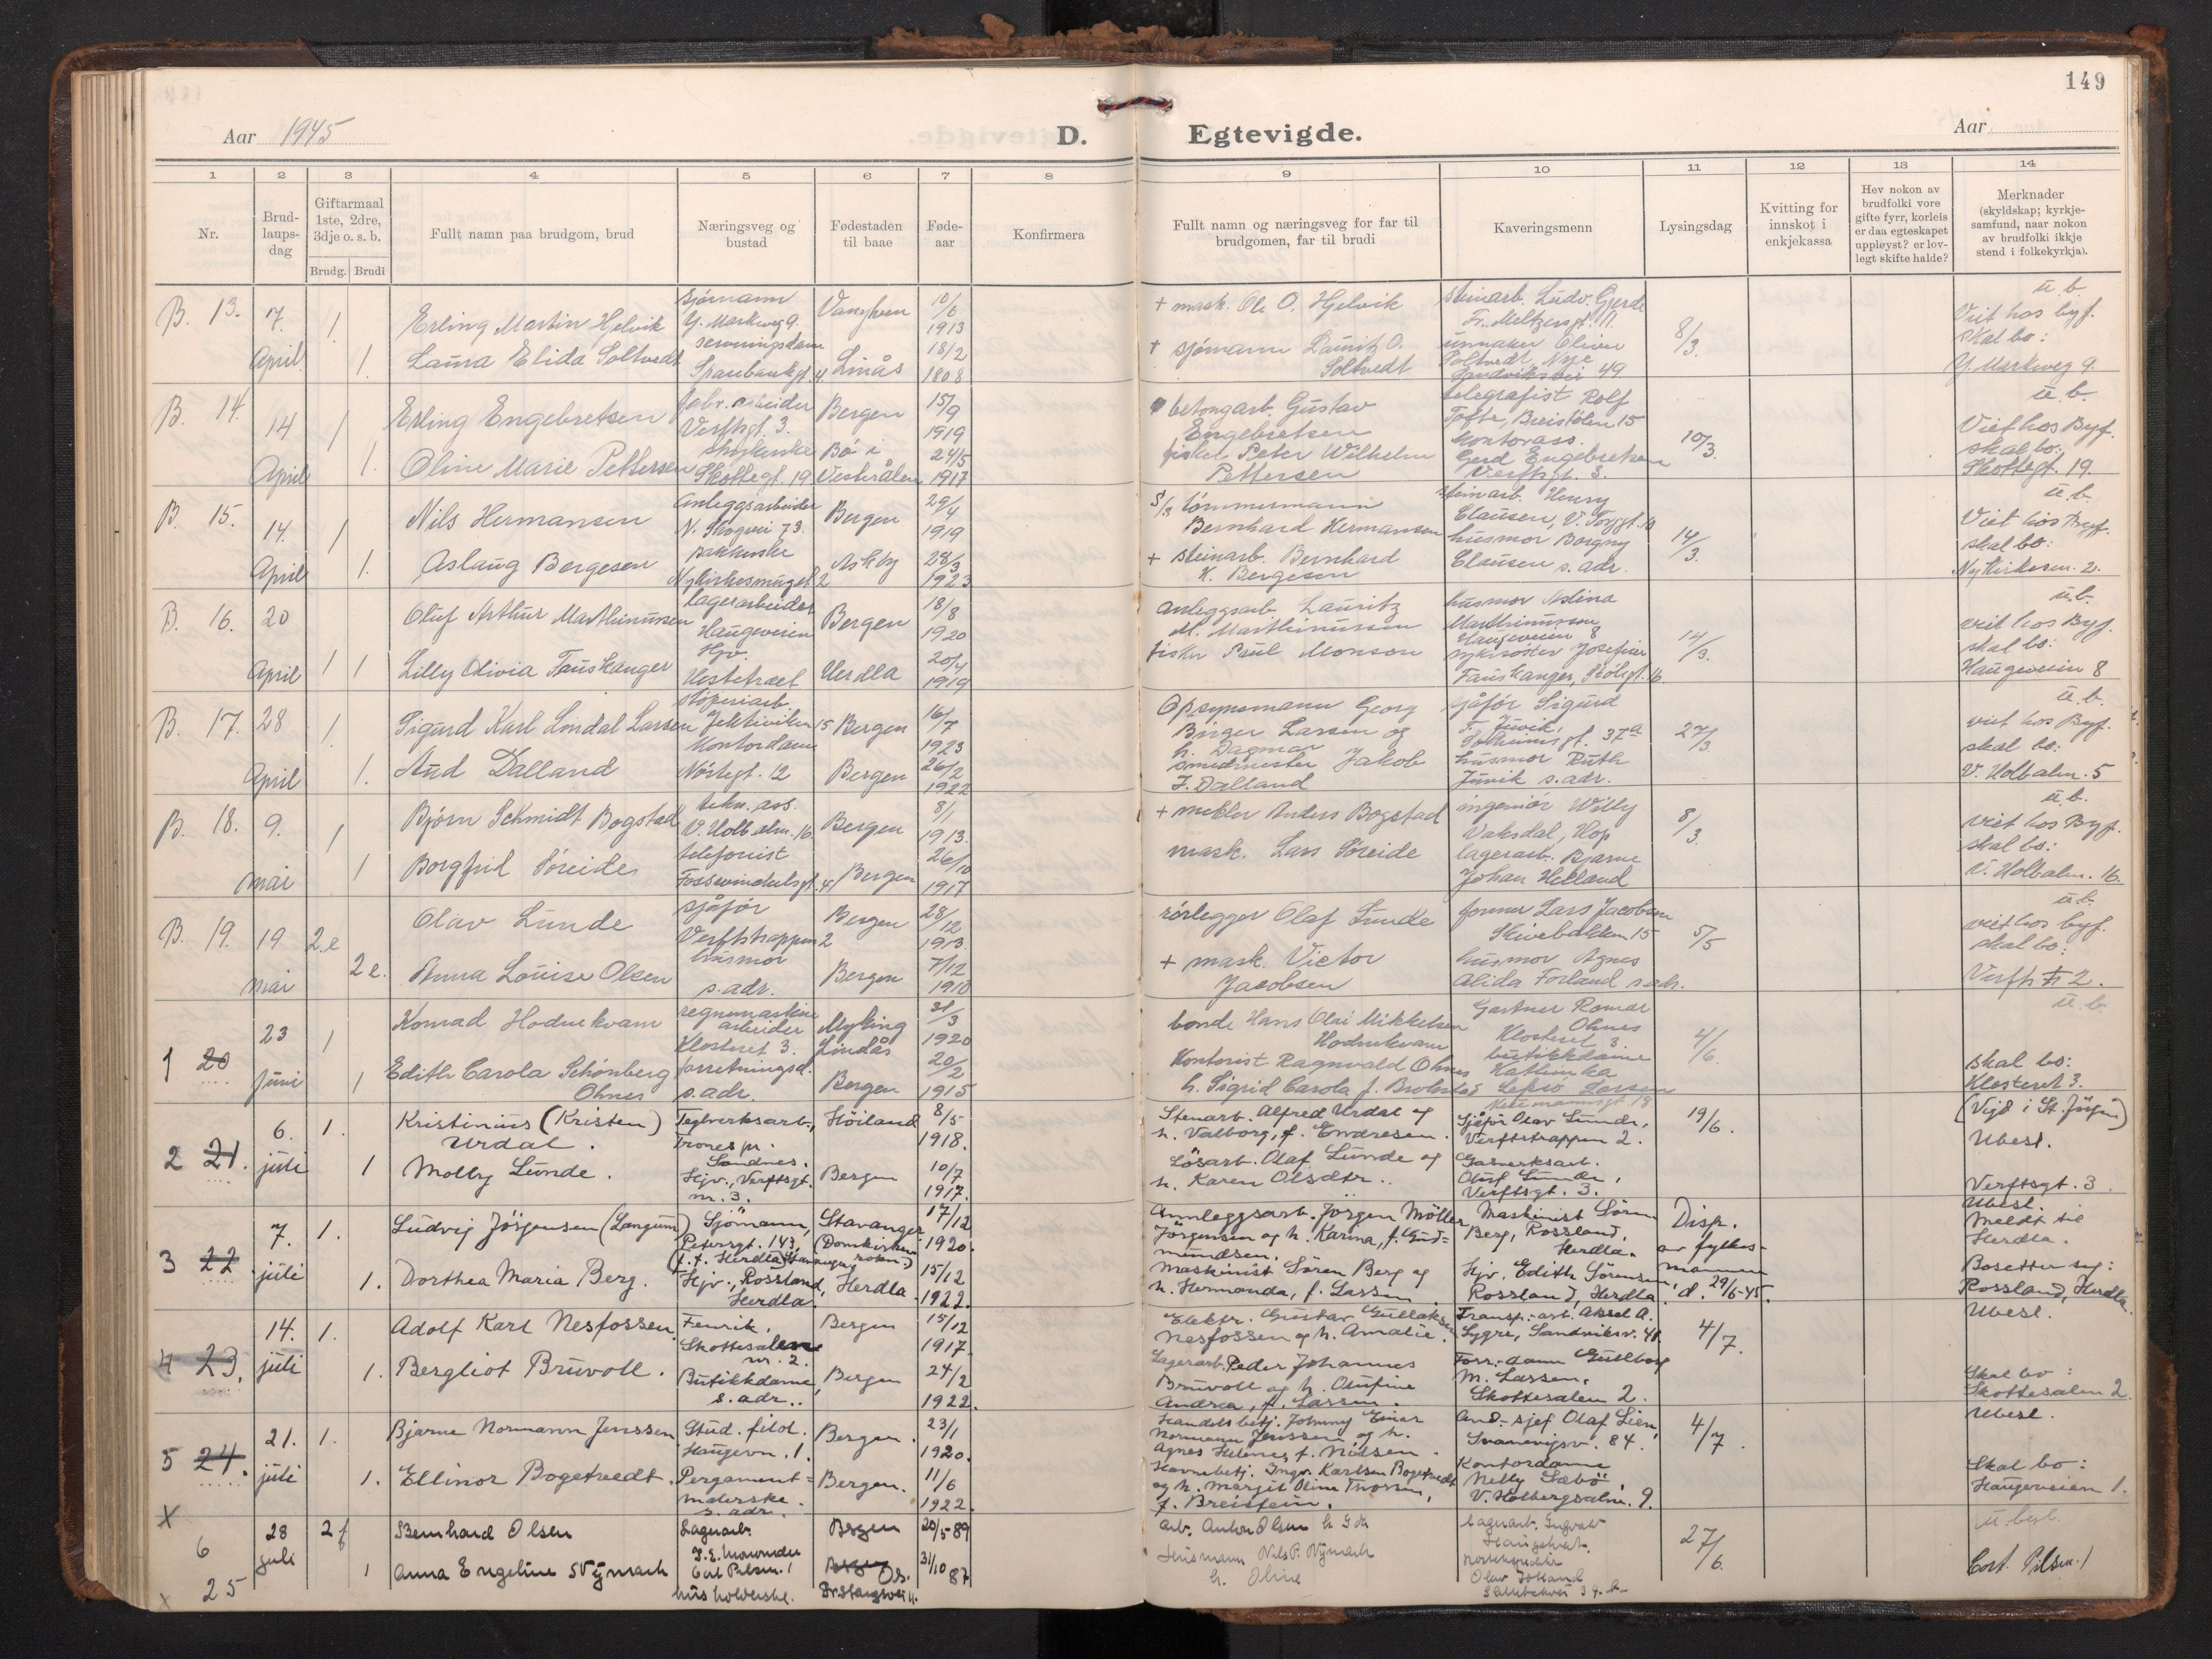 149
Aar 1945
D.
Egtevigde.
Aar
1 2 3 4 5 6 7 8 9 10 11 12 13 14
Nr.
Brud-
laups-
dag
Giftarmaal
1ste, 2dre,
3dje o. s. b.
Brudg. Brudi
Fullt namn paa brudgom, brud
Næringsveg og
bustad
Fødestaden
til baae
Føde-
aar
Konfirmera
Fullt namn og næringsveg for far til
brudgomen, far til brudi
Kaveringsmenn
Lysingsdag
Kvitting for
innskot i
enkjekassa
Hev nokon av
brudfolki vore
gifte fyrr, korleis
er daa egteskapet
uppløyst? er lov-
legt skifte halde?
Merknader
(skyldskap; kyrkje-
samfund, naar nokon
av brudfolki ikkje
stend i folkekyrkja).
B. 13. 7. April 1 1.
Erling Martin Hjelvik
sjømann
Y. Markveg 9.
10/6
1913
+ mask. Ole O. Hjelvik
steinarb. Ludv. Gjerde
Fr. Meltzersgt. 11.
8/3.
u.b.
Viet hos byf.
skal bo:
Y. Markveg 9.
Laura Elida Soltvedt
serveringsdame
Sparebankgt. 4
Linås
18/2
1808
+ sjømann Lauritz O.
Soltvedt
Soltvedt, Nye
Sandviksvei 49
B. 14. 14 April 1 1.
Erling Engebretsen
fabr. arbeider
Verftsgt. 3.
Bergen
15/9
1919
betongarb. Gustav
Engebretsen
telegrafist Rolf
Tofte, Breistølen 15
10/3.
u.b.
Viet hos Byf.
skal bo:
Skottegt. 19
Oline Marie Pettersen
Skottegt. 19
Bø i
Vesterålen
24/5
1917
fisker Peter Wilhelm
Pettersen
kontorass.
Gerd Engebretsen
Verftsgt. 3.
B. 15. 14. April 1 1.
Nils Hermansen
Anleggsarbeider
N. Skogvei 73.
Bergen
29/4
1919
tømmermann
Bernhard Hermansen
steinarb. Henry
Clausen, V. Torggt. 10
14/3.
u.b.
Viet hos Byf.
skal bo:
Nykirkesm. 2.
Aslaug Bergesen
Nykirkesmuget 2
Askøy
28/3
1923
+ steinarb. Bernhard
K. Bergesen
husmor Borgny
Clausen s. adr.
B. 16. 20 April 1 1
Oluf Arthur Marthinussen
lagerarbeider
Haugeveien
Bergen
18/8
1920
anleggsarb. Lauritz
M. Marthinussen
husmor Astina
Marthinussen
Haugeveien 8
14/3.
u.b.
viet hos Byf.
skal bo:
Haugeveien 8
Lilly Olivia Fauskanger
Hjv.
Herdla
20/4
1919
fisker Paul Monsen
sykesøster Josefine
Fauskanger, Skolegt. 6
B. 17. 28 April 1. 1.
Sigurd Karl Lindal Larsen
støperiarb.
Jekteviken 15
Bergen
16/7
1923
Opsynsmann Georg
Birger Larsen og
h. Dagmar
sjåfør Sigurd
F. Juvik,
Solheimsgt. 37a
27/3
u.b.
viet hos Byf.
skal bo:
V. Holbalm. 5
Aud Dalland
Kontordame
Nøstegt. 12
Bergen
26/2
1922
smedmester Jakob
J. Dalland
husmor Ruth
Juvik s. adr.
B. 18. 9. mai 1 1
Bjørn Schmidt Bogstad
tekn. ass.
V. Holb.alm. 16
Bergen
8/1
1913.
+ mekler Anders Bogstad
ingeniør Willy
Vaksdal, Hop
8/3.
u.b.
viet hos Byf.
skal bo:
V. Holbalm. 16.
Borgfrid Søreide
telefonist
Fossewinckelsgt. 4
Bergen
26/10
1917
mask. Lars Søreide
lagerarb. Bjarne
Johan Helland
B. 19. 19 mai 2.e 2e.
Olav Lunde
sjåfør
Verftstrappen 2
Bergen
28/12
1913.
rørlegger Olaf Lunde
former Lars Jacobsen
Skivebakken 15
5/5
u.b.
viet hos byf.
skal bo:
Verftstr 2.
Anna Louise Olsen
husmor
s. adr.
Bergen
7/12
1910
+ mask. Victor
Jacobsen
husmor Agnes
Alida Forland s. adr.
1 20 23 Juni 1 1
Konrad Hodnekvam
regnemaskin
arbeider
Klosteret 3.
Myking
Lindås
31/3
1920
bonde Hans Olai Mikkelsen
Hodnekvam
Gartner Romar
Ohnes
Klosteret 3.
4/6.
u.b.
skal bo:
Klosteret 3.
Edith Carola Schönberg
Ohnes
forretningsd.
s. adr.
Bergen
20/2
1915
Kontorist Ragnvald Ohnes
h. Sigrid Carola f. Brokstad
butikkdame
Kathinka
Lepsø Larsen
2 21. 6. juli 1. 1
Kristinius (Kristen)
Urdal.
Teglverksarb.,
Trones pr.
Sandnes.
Höiland
8/5
1918.
Stenarb. Alfred Urdal og
h. Valborg, f. Endresen.
Sjåför Olav Lunde,
Verftstrappen 2.
19/6.
(Vigd i St. Jörgen)
Ubesl.
Verftsgt. 3.
Molly Lunde.
Hjv., Verftsgt.
nr. 3.
Bergen
10/7
1917.
Lösarb. Olaf Lunde og
h. Karen Olsdtr..
Gasverksarb.
Oluf Lunde,
Verftsgt. 3.
3 22. 7. juli 1. 1.
Ludvig Jörgensen (Langum)
Sjömann,
Petersgt. 143,
(f. t. Herdla)
Stavanger
(Domkirken
sokn.)
17/12
1920.
Annleggsarb. Jörgen Möller
Jörgensen og h. Karina, f. Gud=
mundsen.
Maskinist Sören
Berg, Rossland,
Herdla.
Disp.
av fylkes-
mannen
d. 29/6-45.
Ubesl.
Meldt til
Herdla.
Bosetter seg:
Rossland, Herdla.
Dorthea Maria Berg.
Hjv., Rossland,
Herdla.
Herdla.
15/12
1922.
Maskinist Sören Berg og
h. Hermanda, f. Larsen.
Hjv. Edith Sörensen,
Rossland, Herdla.
4 23. 14. juli 1. 1.
Adolf Karl Nesfossen.
Fenrik,
Skottesalen
nr. 2.
Bergen
15/12
1917.
Elektr. Gustav Gullaksen
Nesfossen og h. Amalie.
Transp.-arb. Aksel A.
Sygre, Sandviksv. 41.
4/7.
Ubesl.
Skal bo:
Skottesalen 2.
Bergliot Bruvoll.
Butikkdame,
s. adr..
Bergen
24/2
1922.
Lagerarb. Peder Johannes
Bruvoll og h. Olufine
Andrea, f. Larsen.
Forr.-dame Gullborg
M. Larsen,
Skottesalen 2.
5 24. 21. juli 1. 1.
Bjarne Normann Jenssen
Stud. filol.
Haugevn. 1.
Bergen.
23/1
1920.
Handelsbetj. Johnny Einar
Normann Jenssen og h.
Agnes Helene, f. Nilsen.
And.-sjef Olaf Lien,
Svanevigsv. 84.
4/7.
Ubesl.
Skal bo:
Haugeveien 1.
Ellinor Bogetvedt.
Pergament=
malerske.
s. adr.
Bergen.
11/6
1922.
Havnebetj. Ingv. Karlsen Bogetvedt
og h. Margit Oline Thorsen,
f. Breistein.
Kontordame
Nelly Sæbö,
V. Holbergsalm. 9.
X 6 28 juli 2f 1
Bernhard Olsen
Lagerarb.
Cort Pilsm. 1
Bergen
20/5-89
arb. Anton Olsen
lagerarb. Ingvald
27/6.
U. besl.
Cort. Pilsm. 1
X 25
Anna Engeline Nymark
husholderske.
Os.
31/10 87
Husmann Nils P. Nymark
h. Oline